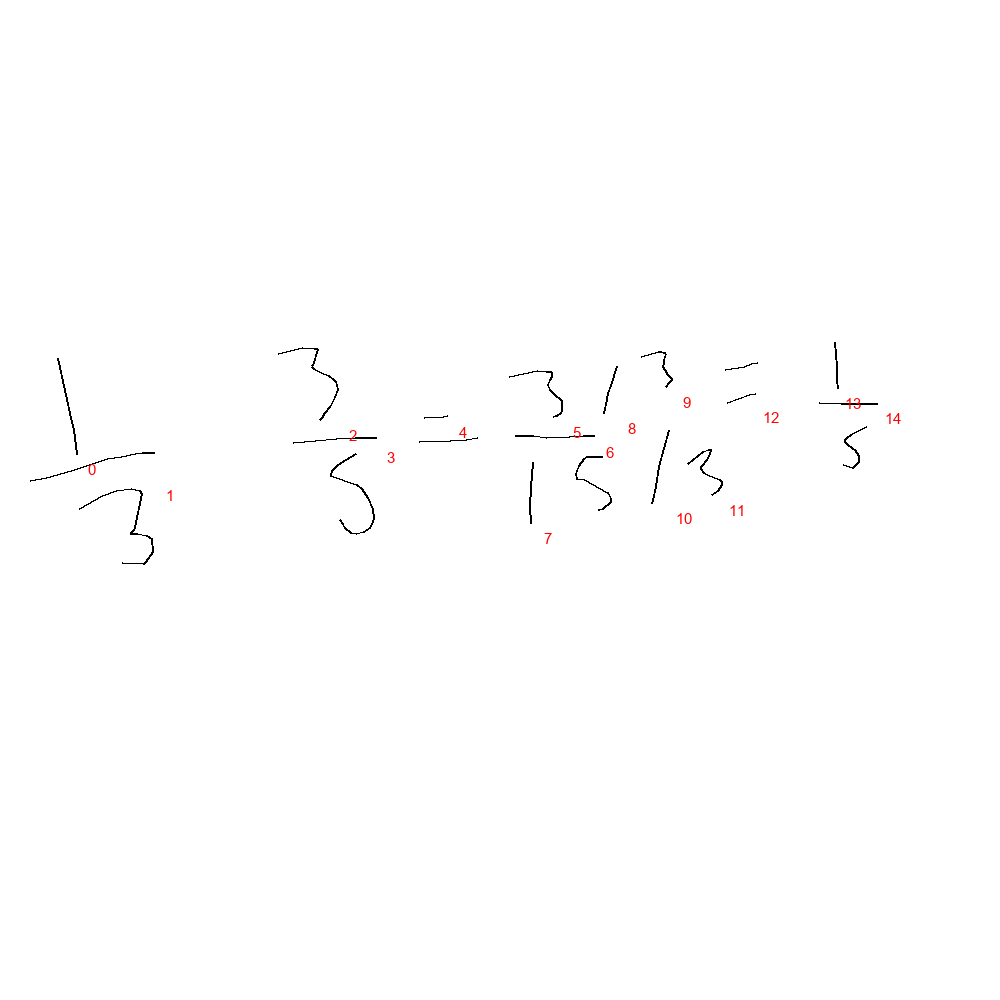 1/3 3/5 = 3/3 / 15/3 = 1/5
0 1 2 3 4 5 6 7 8 9 10 11 12 13 14